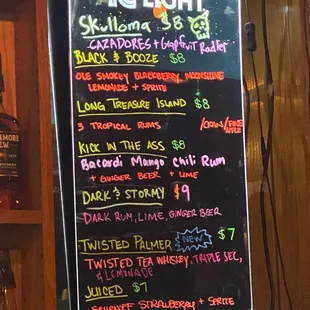 LIGHT
Skulloma $8
CAZADORES + Grapfruit Radler
BLACK & BOOZE $8
OLE SMOKEY BLACKBERRY MOONSHINE
LEMONADE + SPRITE
LONG TREASURE ISLAND $8
3 TROPICAL RUMS /CRAN/PINE
APPLE
KICK IN THE ASS $8
Bacardi Mango Chili Rum
+ GINGER BEER + LIME
DARK & STORMY $9
DARK RUM, LIME, GINGER BEER
TWISTED PALMER NEW $7
TWISTED TEA WHISKEY, TRIPLE SEC,
& LEMONADE
JUICED $7
SMIRNOFF STRAWBERRY + SPRITE